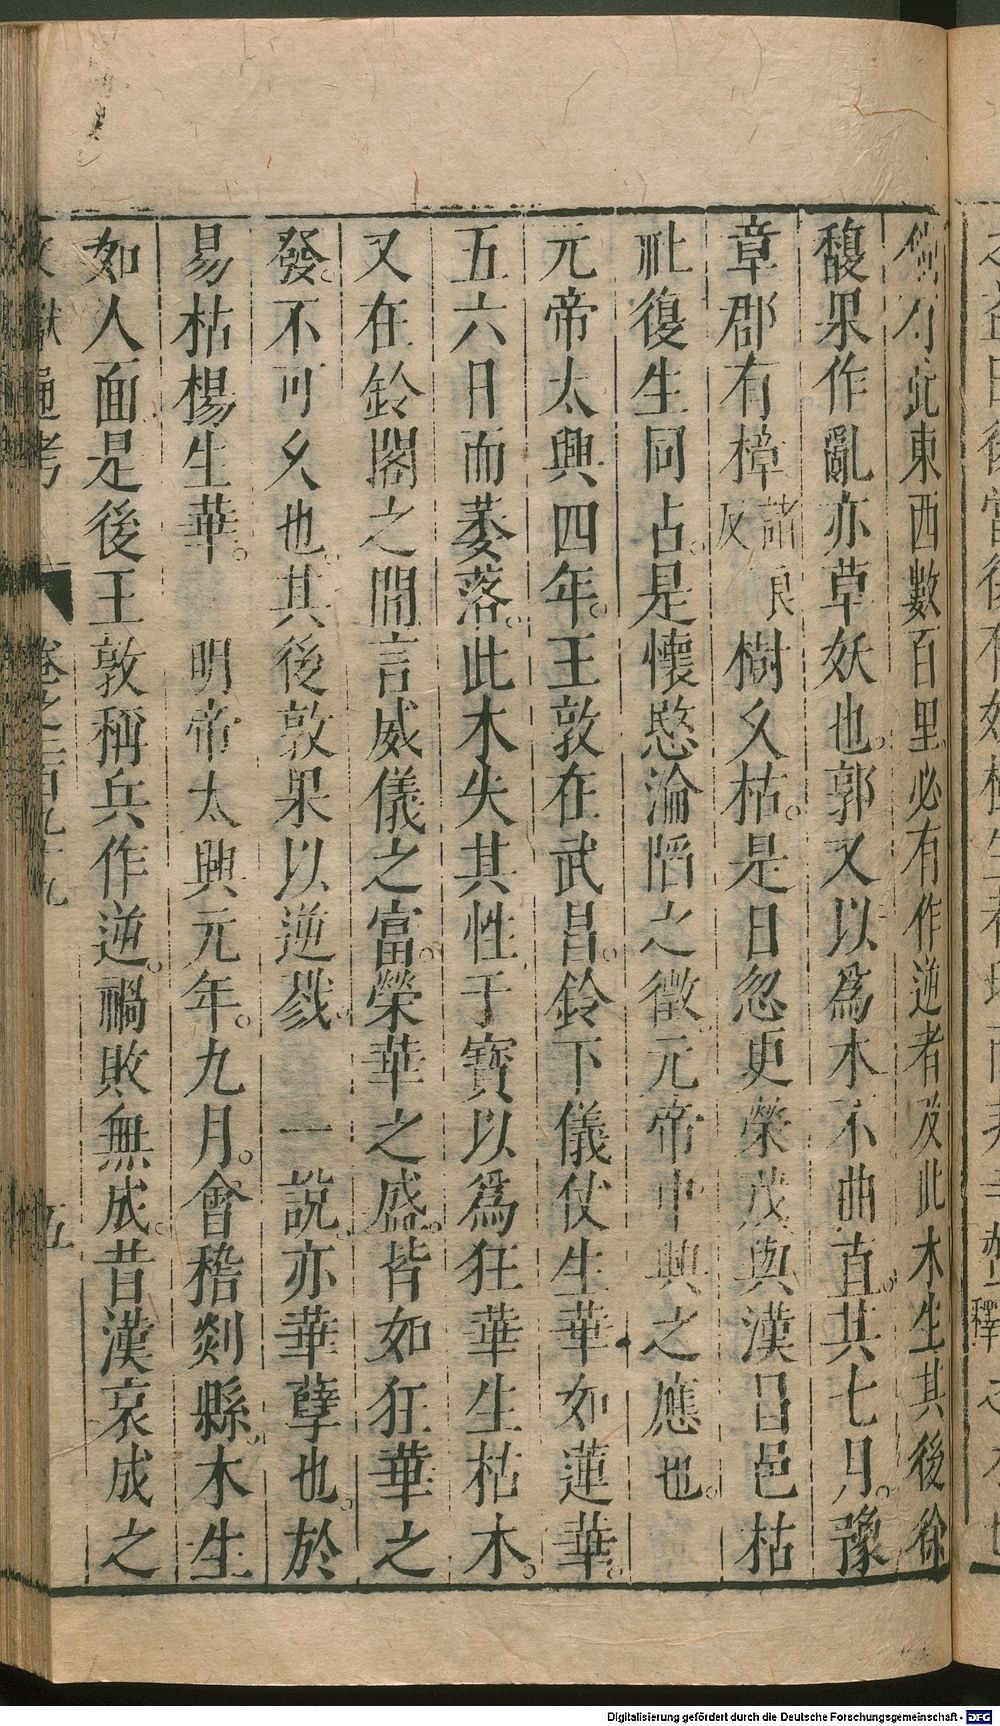 此東西數百里必有作逆者及此木生其後徐
馥果作亂亦草妖也郭又以爲木不曲直其七月豫
章郡有樟諸良反樹久枯是日忽更榮茂與漢昌邑枯
社復生同占是懷愍淪陷之徵元帝中興之應也
元帝太興四年王敦在武昌鈴下儀仗生華如蓮華
五六日而萎落此木失其性于寶以爲狂華生枯木
又在鈴閣之間言威儀之富榮華之盛皆如狂華之
發不可久也其後敦果以逆戮 一說亦華孽也於
易枯楊生華 明帝太興元年九月會稽剡縣木生
如人面是後王敦稱兵作逆禍敗無成昔漢哀成之
通考 卷之二百九十九 五
Digitalisierung gefördert durch die Deutsche Forschungsgemeinschaft - DFG